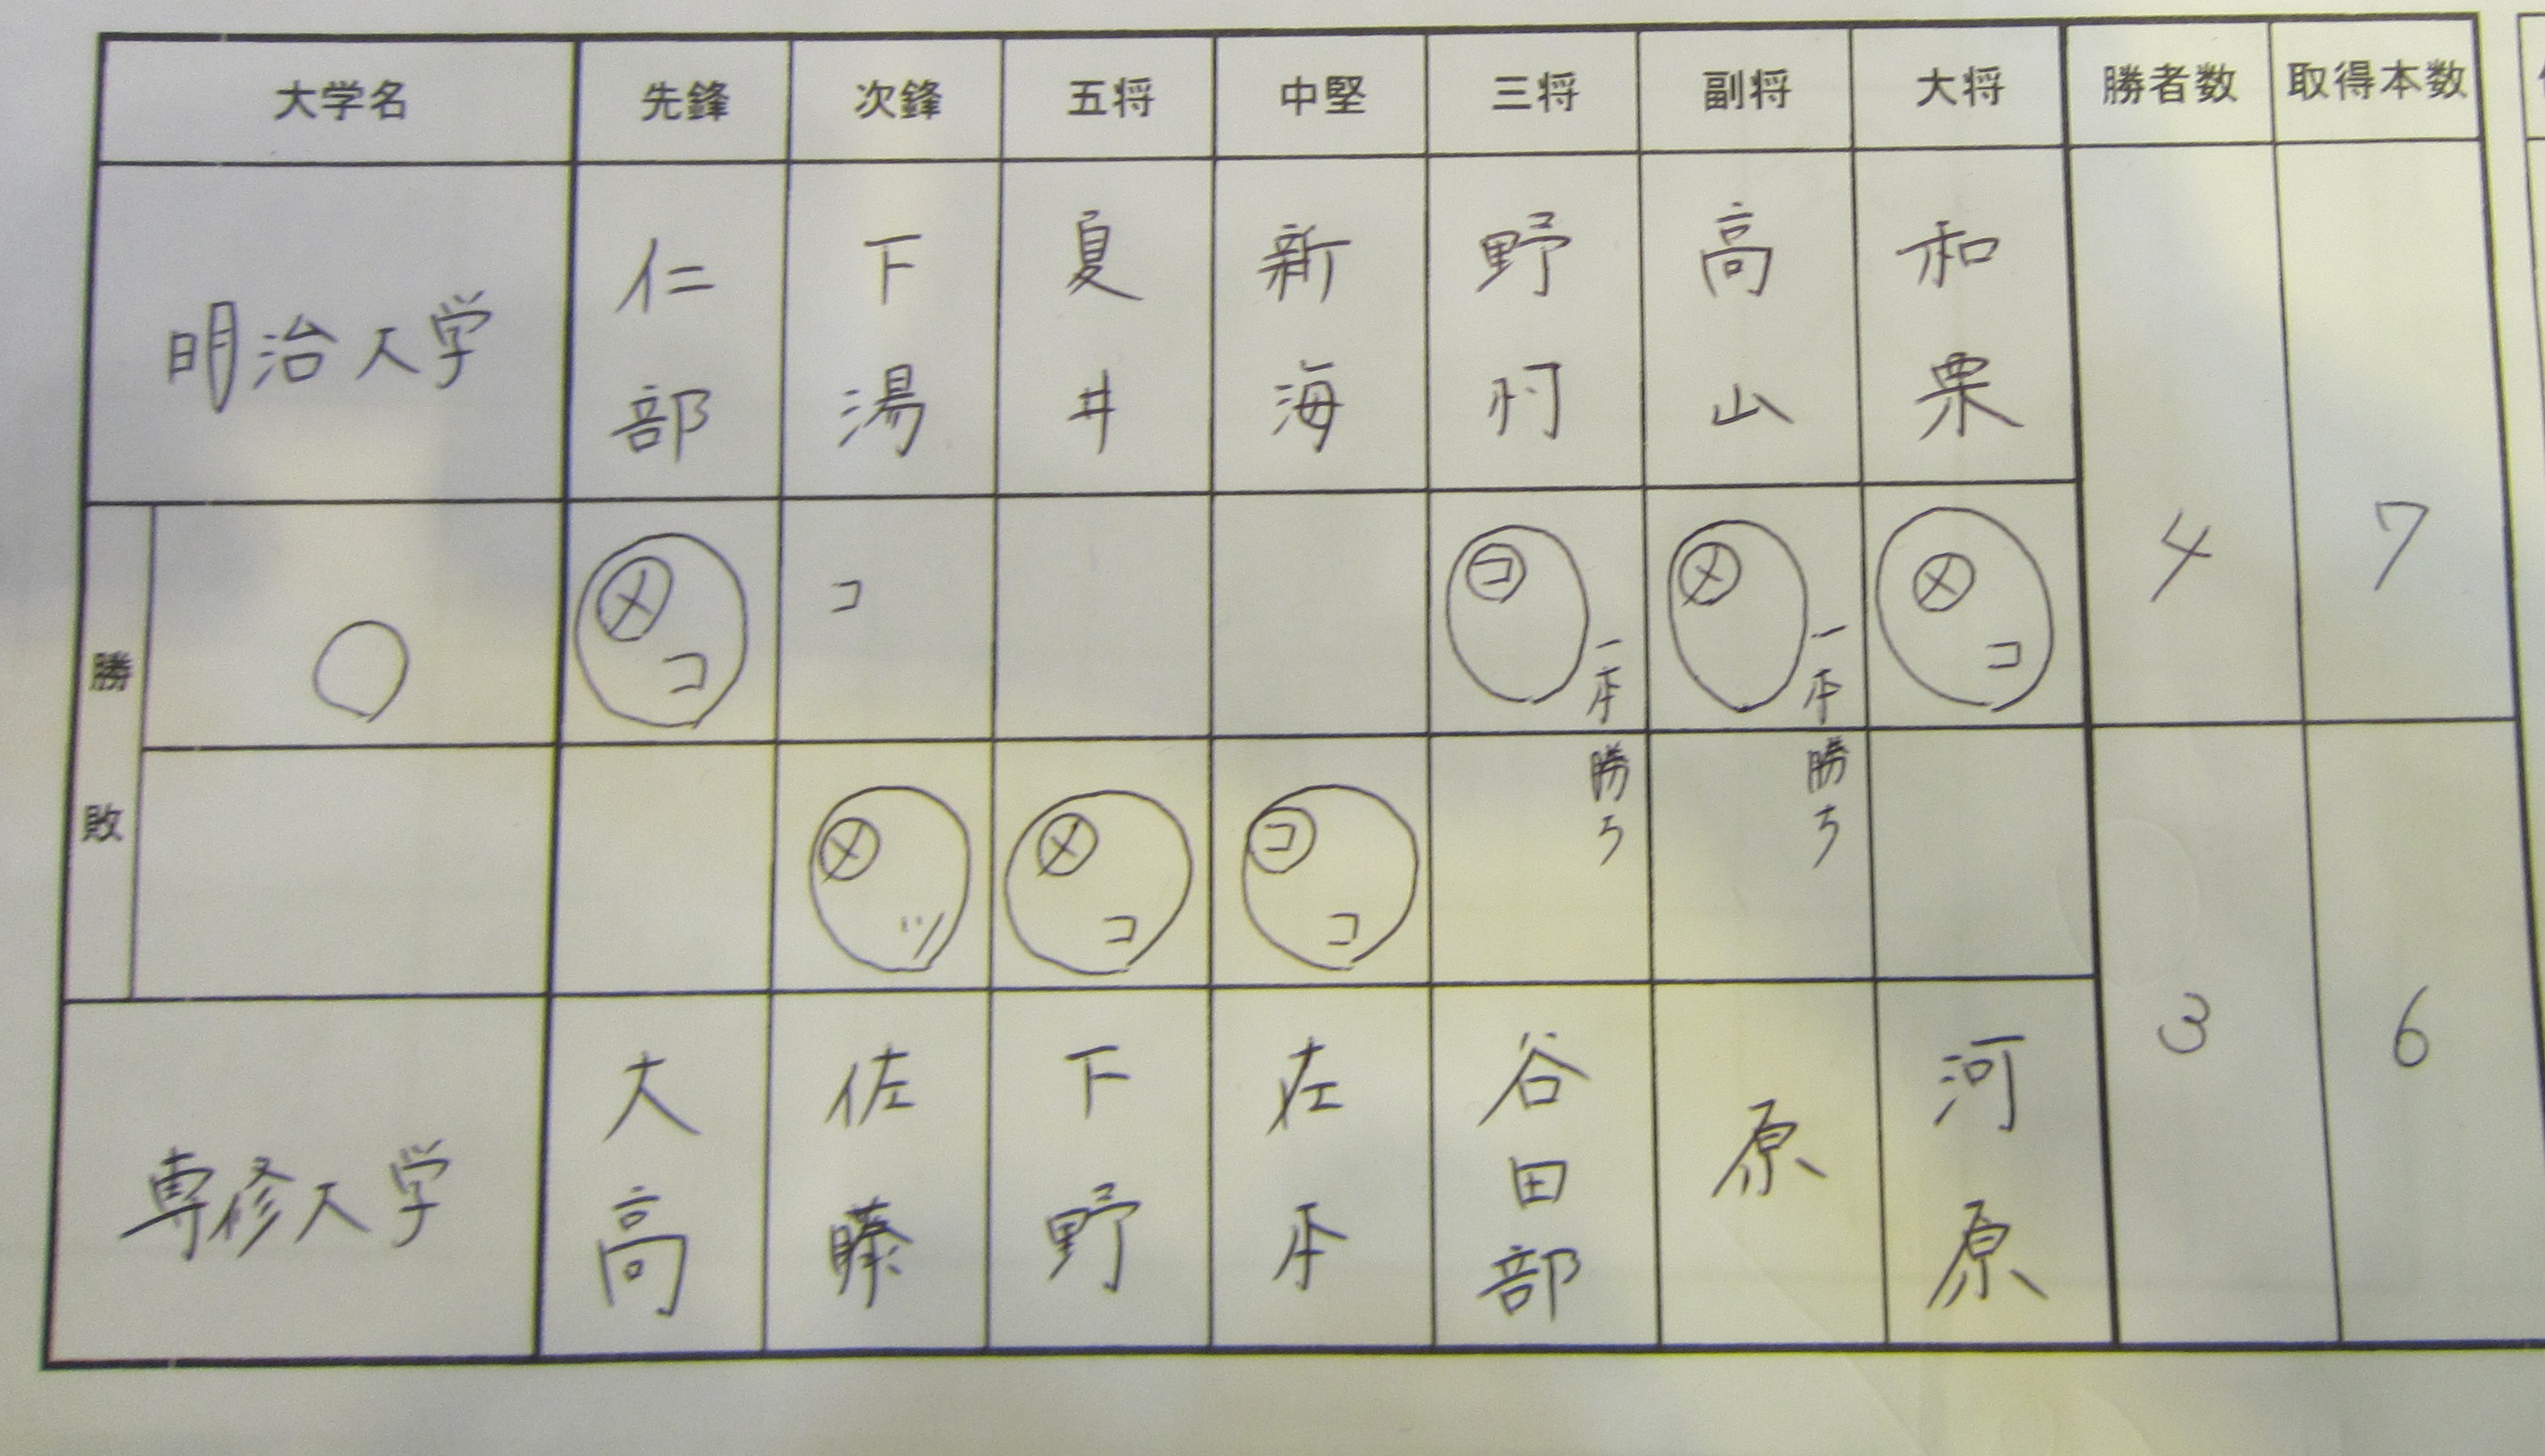 大学名 先鋒 次鋒 五将 中堅 三将 副将 大将 勝者数 取得本数
明治大学 仁部 下湯 夏井 新海 野村 高山 和栗 4 7
勝敗
○ メコ コ コ 一本勝ち メ 一本勝ち メコ
メツ メコ ココ
専修大学 大高 佐藤 下野 左本 谷田部 原 河原 3 6